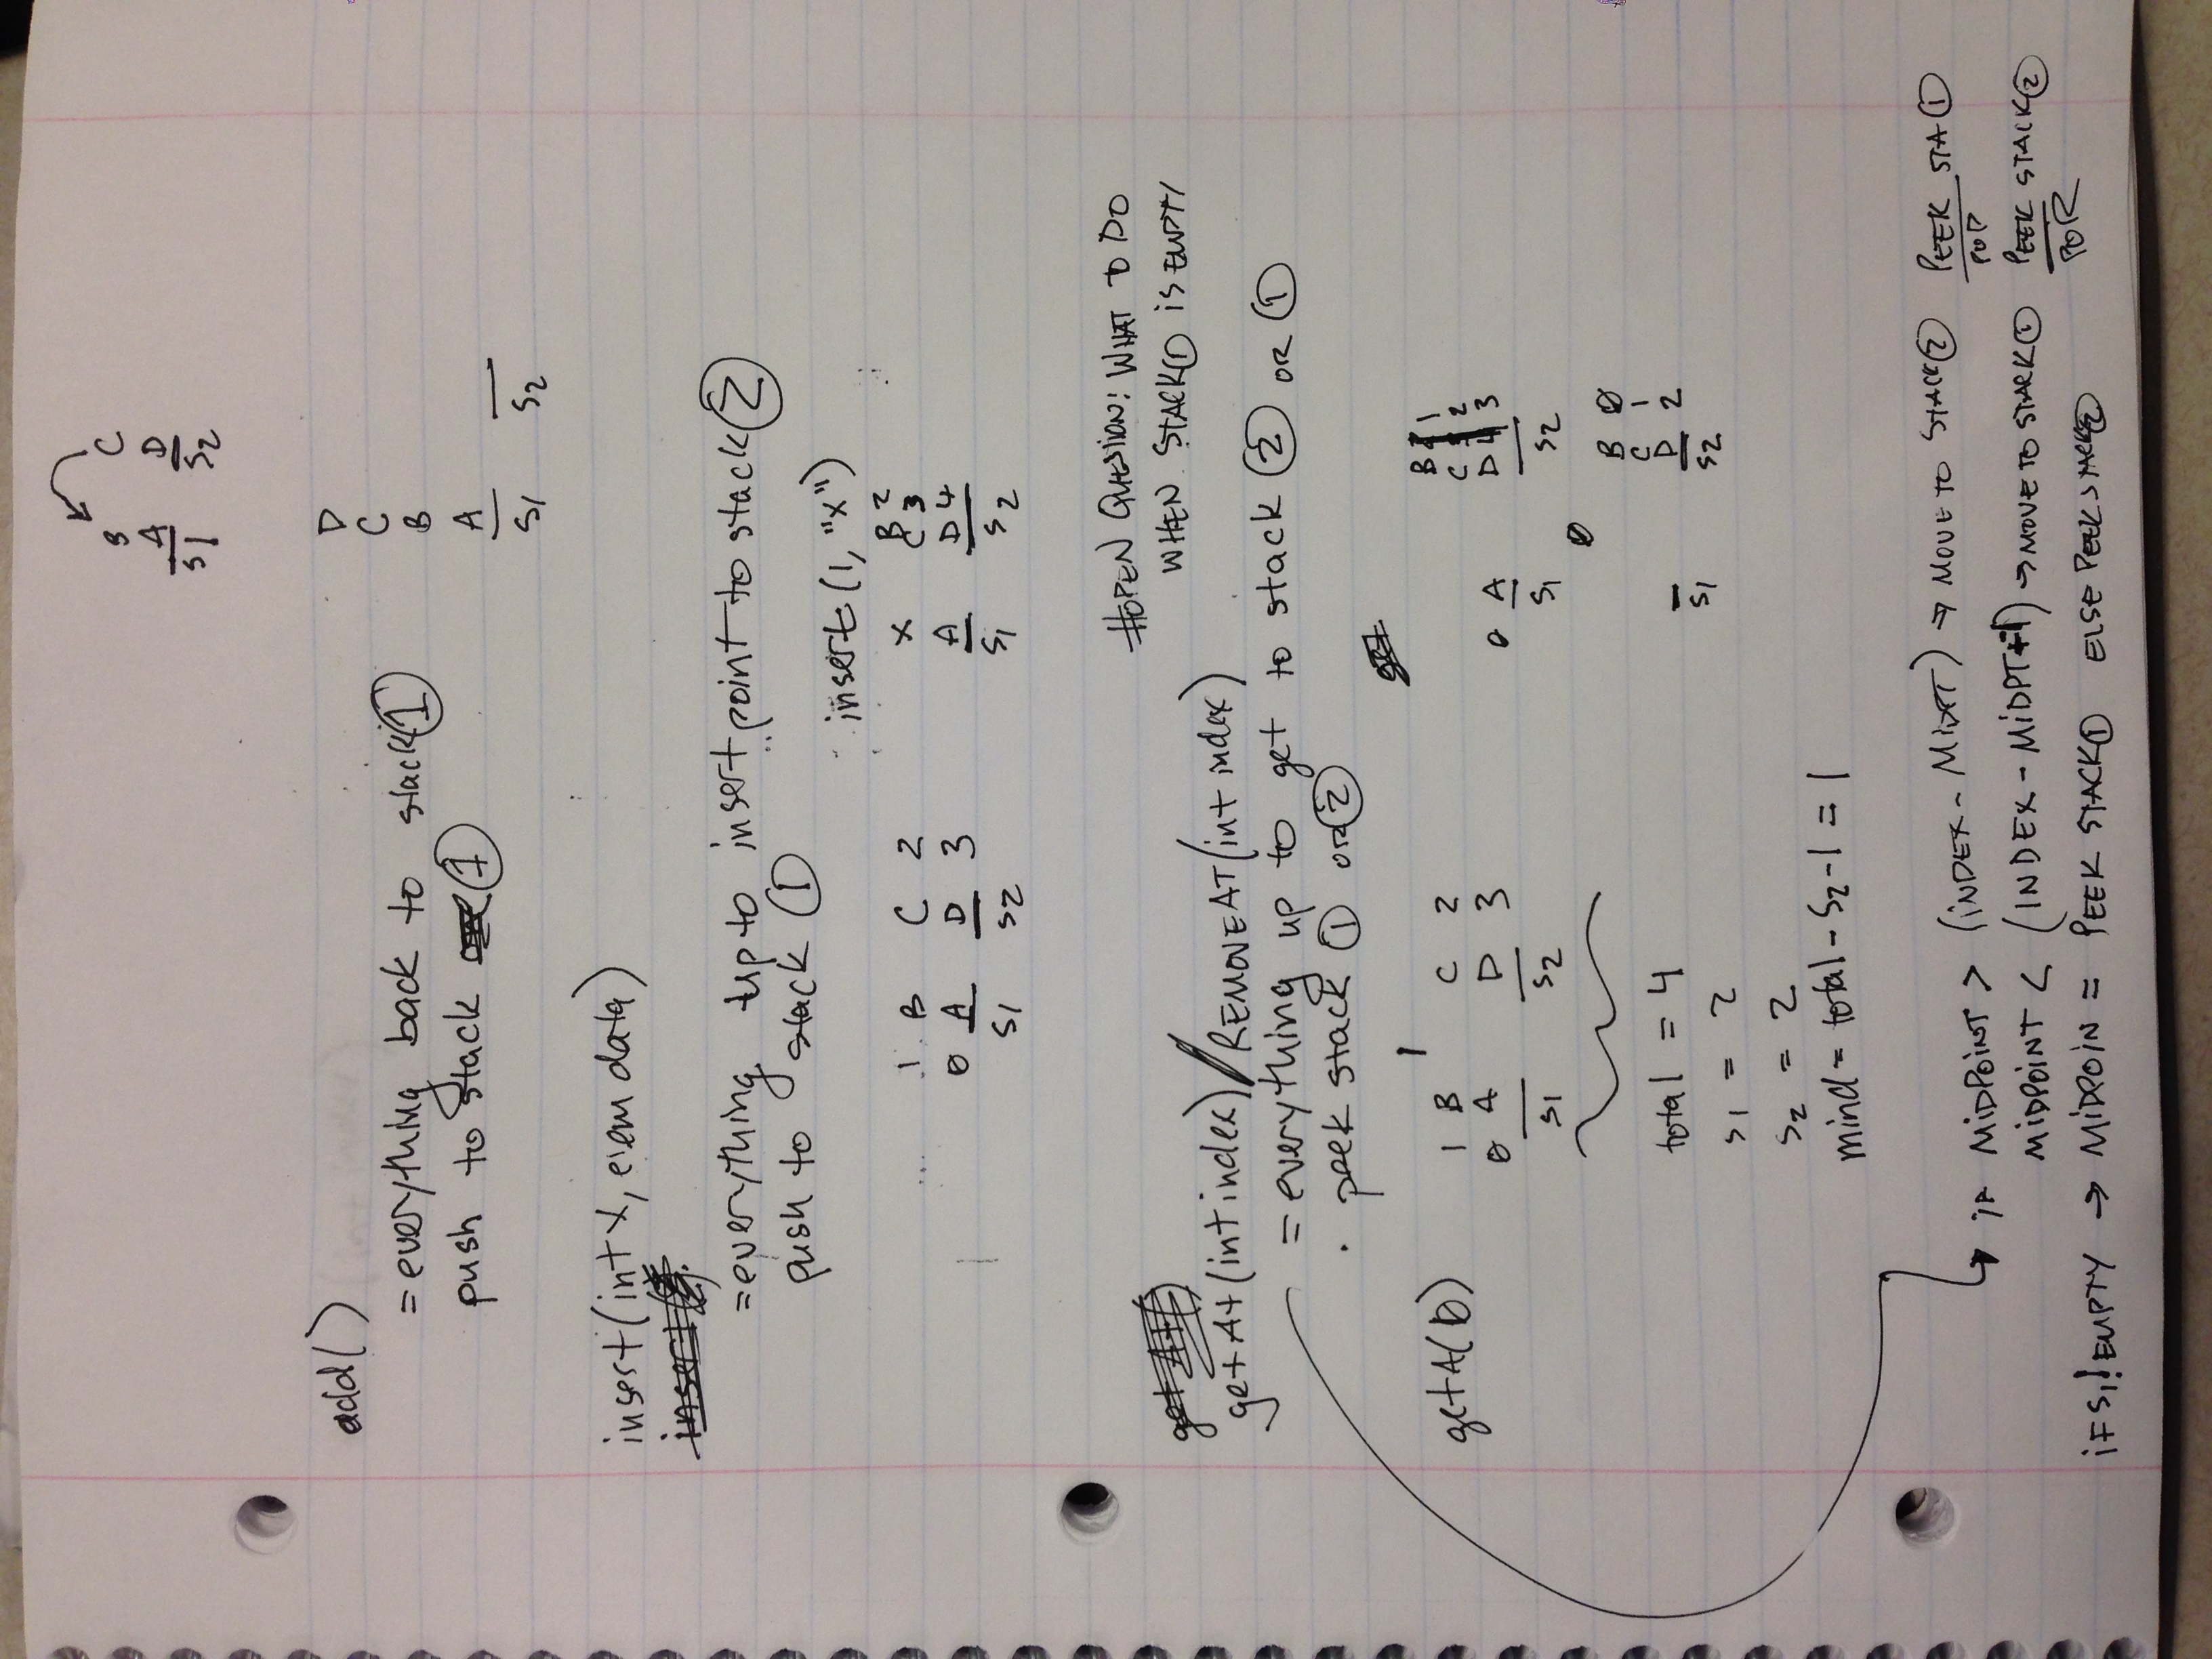 B C
A D
S1 S2
add()
D
C
= everything back to stack 1
B
push to stack 1
A
S1 S2
insert(int x, elem data)
insert(
= everything up to insert point to stack 2
push to stack 1
insert(1, "x")
1 B C 2 X B 2
C 3
0 A D 3 A D 4
S1 S2 S1 S2
#OPEN QUESTION: WHAT TO DO
WHEN STACK 1 IS EMPTY
getAt()
getAt(int index)/REMOVEAT(int index)
= everything up to get to stack 2 OR 1
peek stack 1 OR 2
get
1
getA( ) 1 B C 2 B 1
C 2
0 A D 3 0 A D 3
S1 S2 S1 S2
0
B 0
C 1
total = 4 D 2
S1 S2
S1 = 2
S2 = 2
mind = total - S2 - 1 = 1
IF MIDPOINT > (INDEX - MIDPT) → MOVE TO STACK 2 PEEK STA 1
POP
MIDPOINT < (INDEX - MIDPT+1) → MOVE TO STACK 1 PEEK STACK 2
POP
IF S1 ! EMPTY → MIDPOIN = PEEK STACK 1 ELSE PEEK STACK 2